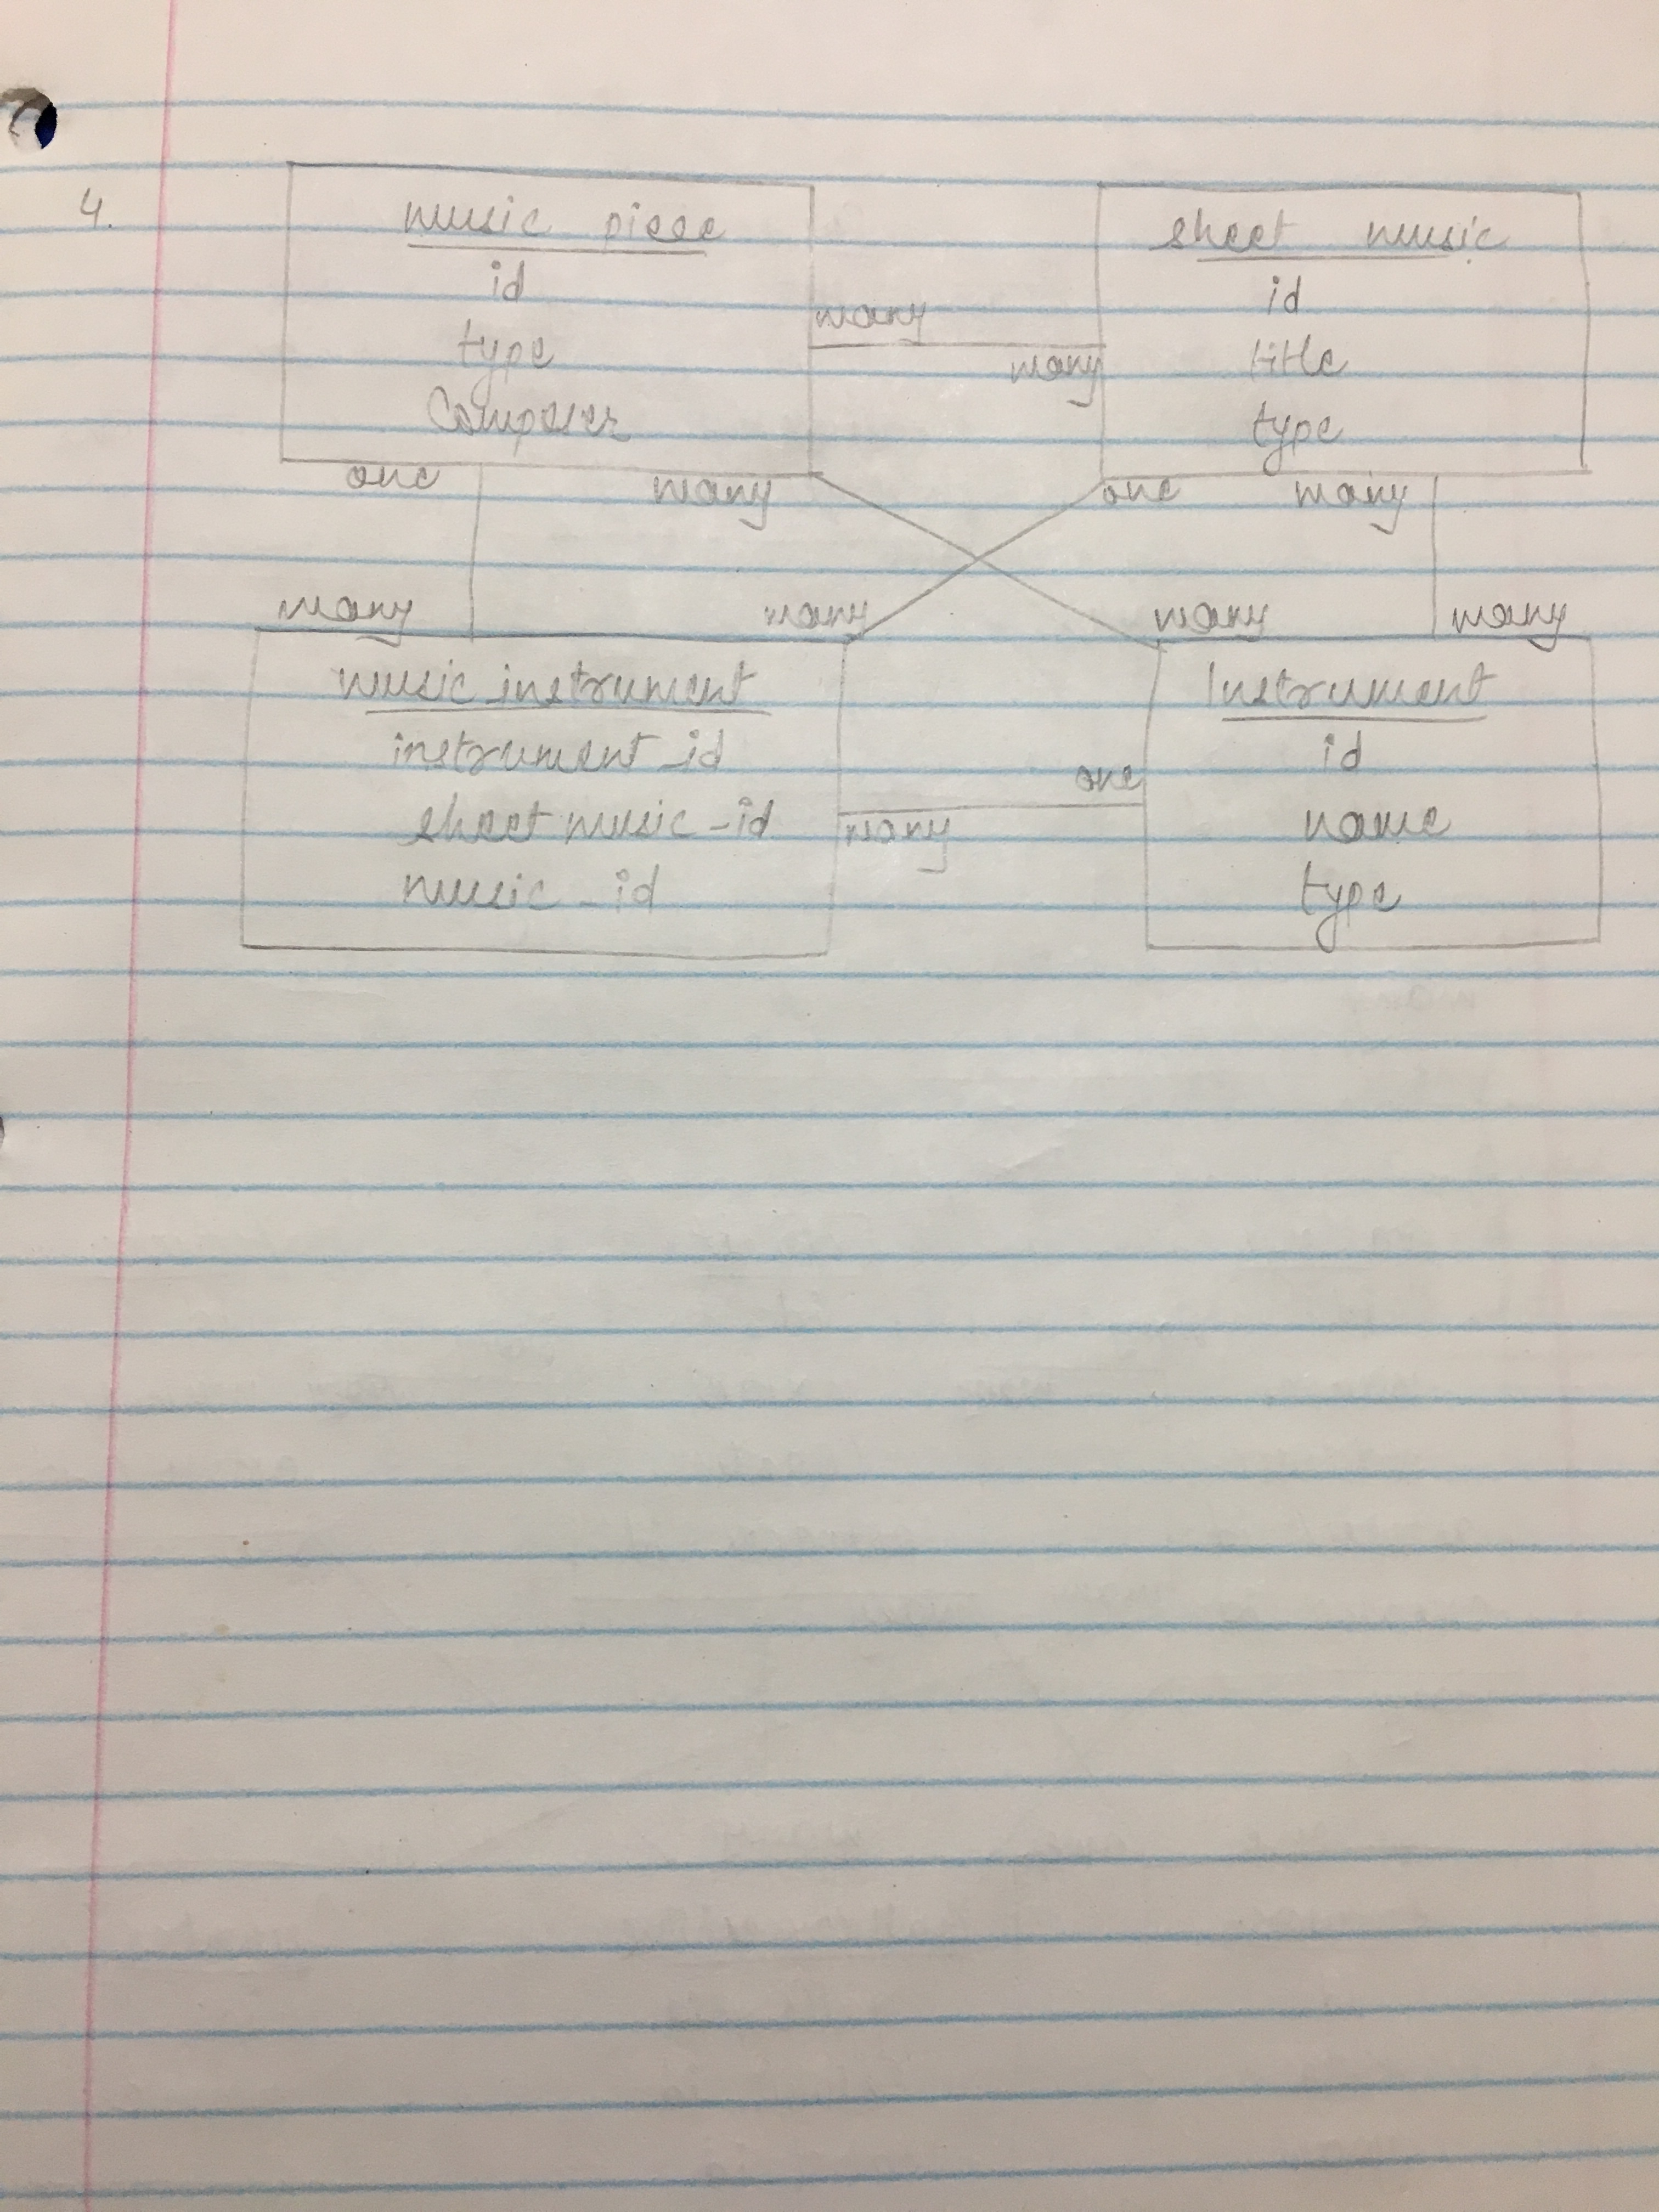 4.
music piece
id
type
Composer
many
many
sheet music
id
title
type
one many
one many
many many
many many
music instrument
instrument_id
sheet music-id
music-id
one
many
Instrument
id
name
type